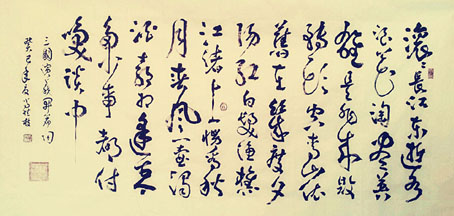 滚〻长江东逝水
浪花淘尽英
雄是非成败
转头空青山依
舊在幾度夕
阳红白髮渔樵
江渚上惯看秋
月春风一壶浊
酒喜相逢古今
多少事都付
笑谈中
三國演義開篇词
癸巳年夏